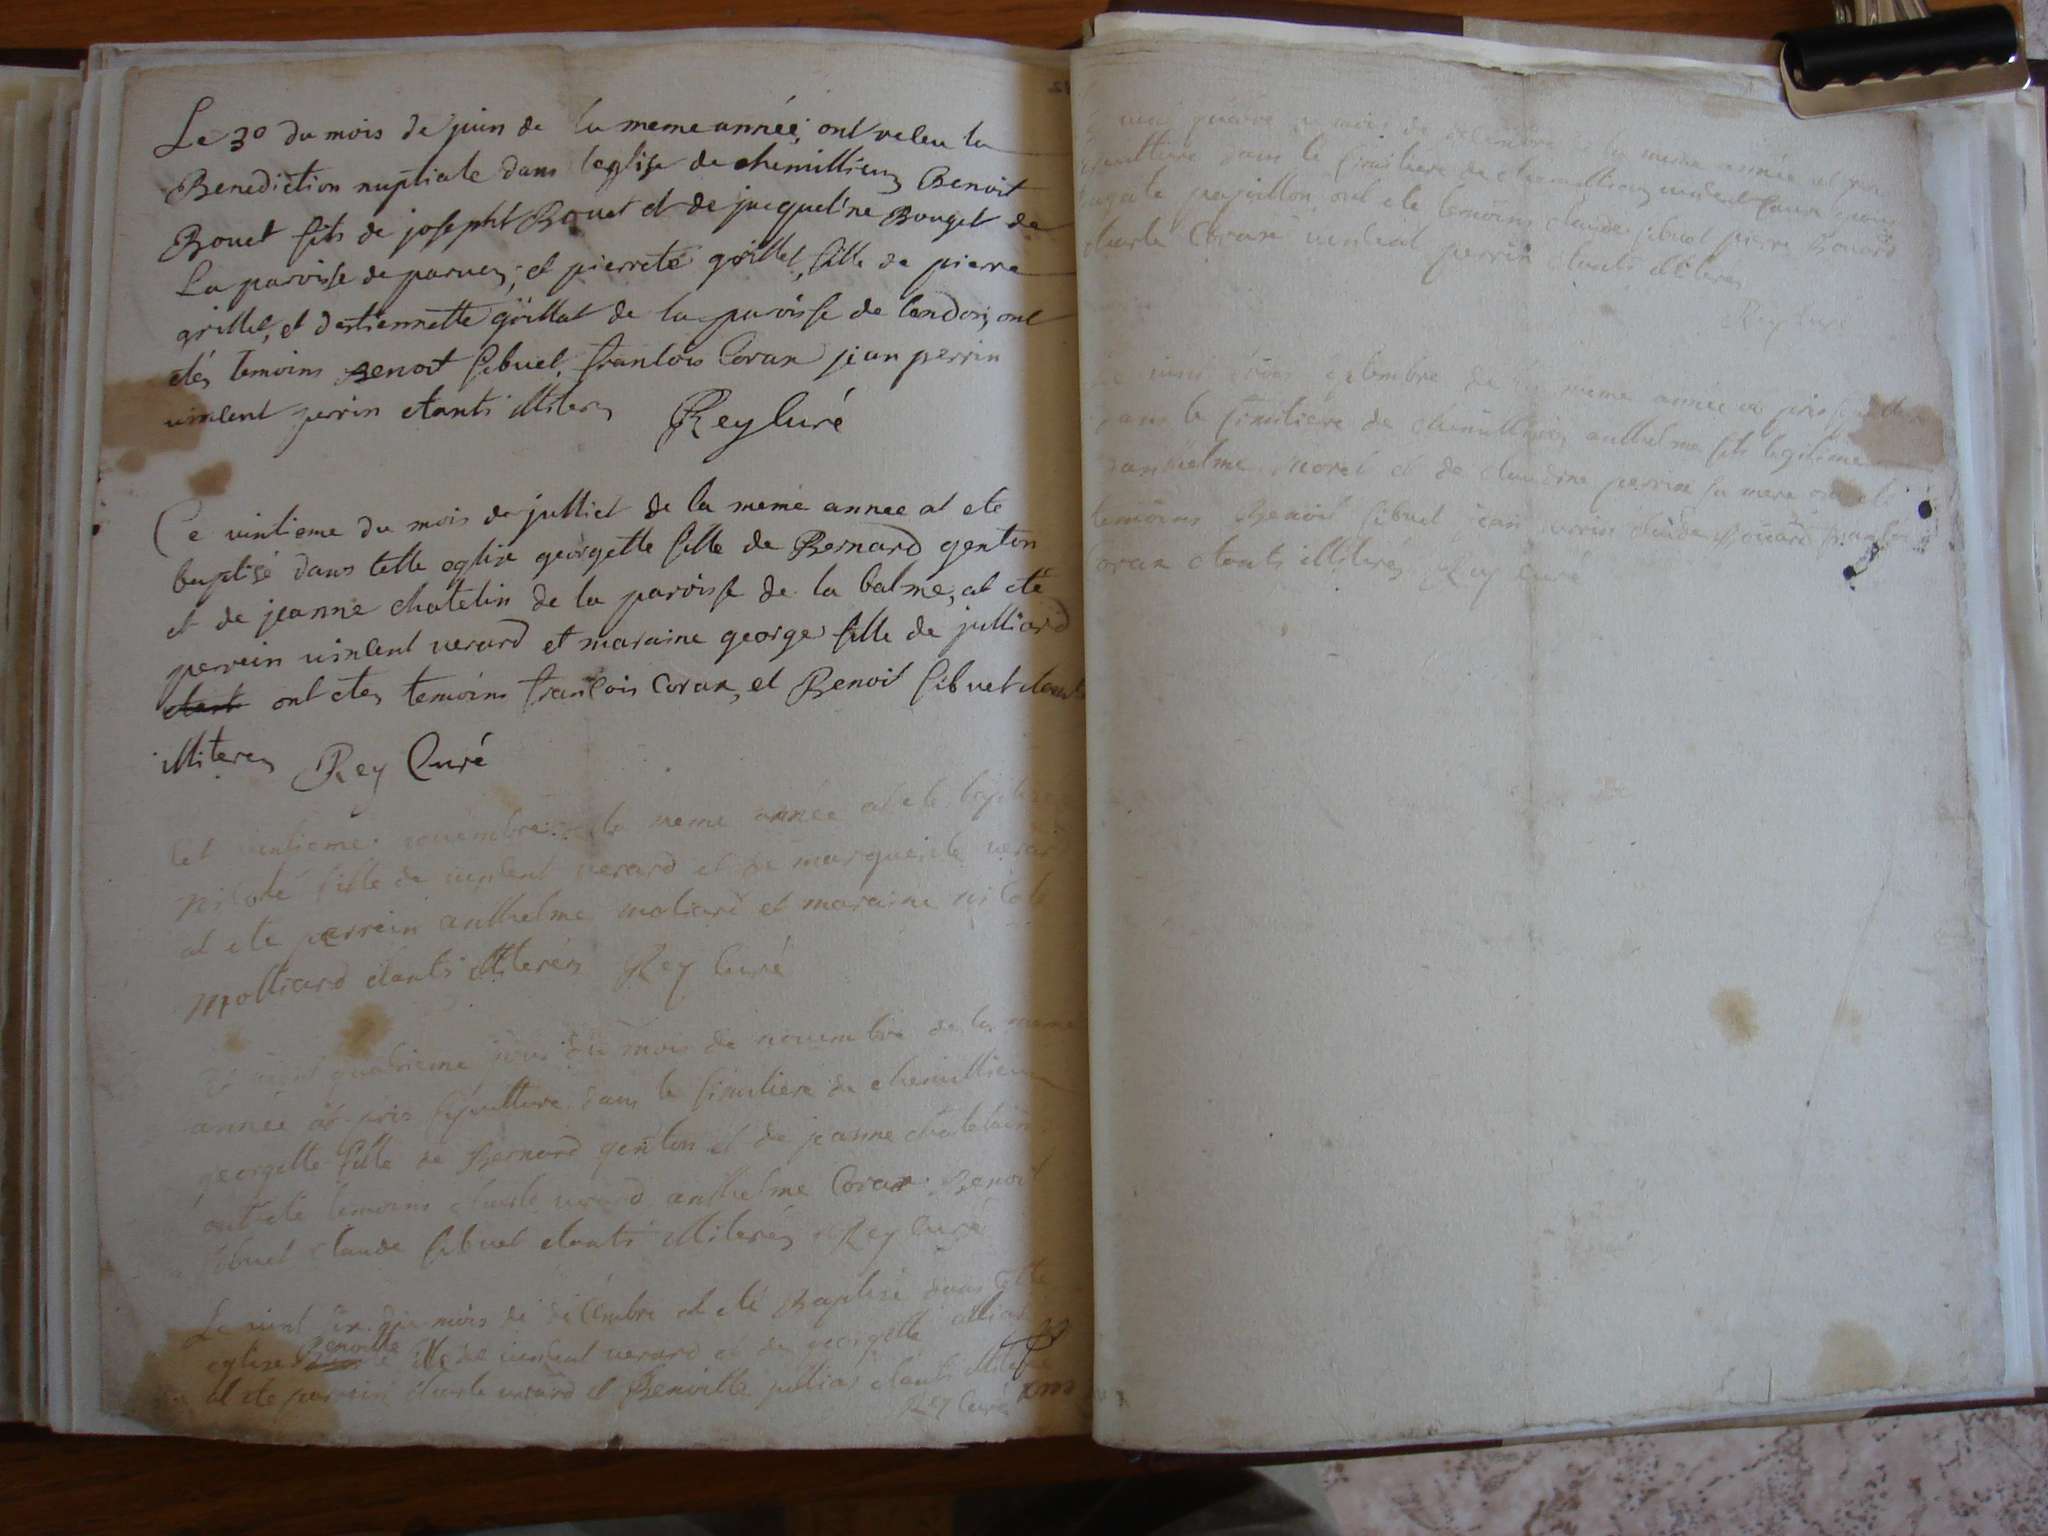 Le 30 du mois de juin de la meme année, ont receu la
Benediction nuptiale dans leglise de chemillieu Benoit
Bouet fils de josepht Bouet et de jacqueline Bouget de
La paroisse de parues, et pierrete grillet, fille de pierre
grillet, et destiennette goillat de la paroisse de londoi, ont
etés temoins Benoit sibuet, francois Coran jean perrin
vincent perrin etants illiteres Rey Curé
Ce vintieme du mois de julliet de la meme annee at ete
baptisé dans cette eglise georgette fille de Bernard genton
et de jeanne chatelin de la paroisse de la balme, at eté
perrein vincent verard et maraine george fille de julliard
ont etes temoins francois Coran, et Benoit sibuet etants
illiteres Rey Curé
Cet vintieme novembre de la meme année at ete baptisé
nicole fille de vincent verard et de marguerite verard
at ete perrein anthelme moliard et maraine nicole
molliard etants illiterés Rey Curé
vint quatrieme jour du mois de novembre de la meme
année at pris sepulture dans le simitiere de chemillieu
georgette fille de Bernard genton et de jeanne chatelain
ont eté temoins charle verard anthelme Coran Benoit
sibuet claude sibuet etants illiterés Rey Curé
Le vint six du mois de decembre at eté Baptisé dans cette
eglise Benoitte fille de vincent verard et de georgette
at ete parrein charle verard et Benoitte julliar etants illiteré
Rey Curé
mois de decembre de la meme année at pris
sepulture dans le simitiere de chemillieu vincent
papillon, ont ete temoins claude sibuet pierre Bouard
charle Coran vincent perrin etants illiteres
Rey Curé
Le vint trois decembre de la meme année at pris sepulture
dans le simitiere de chemillieu anthelme fils legitime
danthelme morel et de claudine perrin sa mere ont ete
temoins Benoit sibuet jean perrin claude Bouard francois
Coran etants illiterés Rey Curé